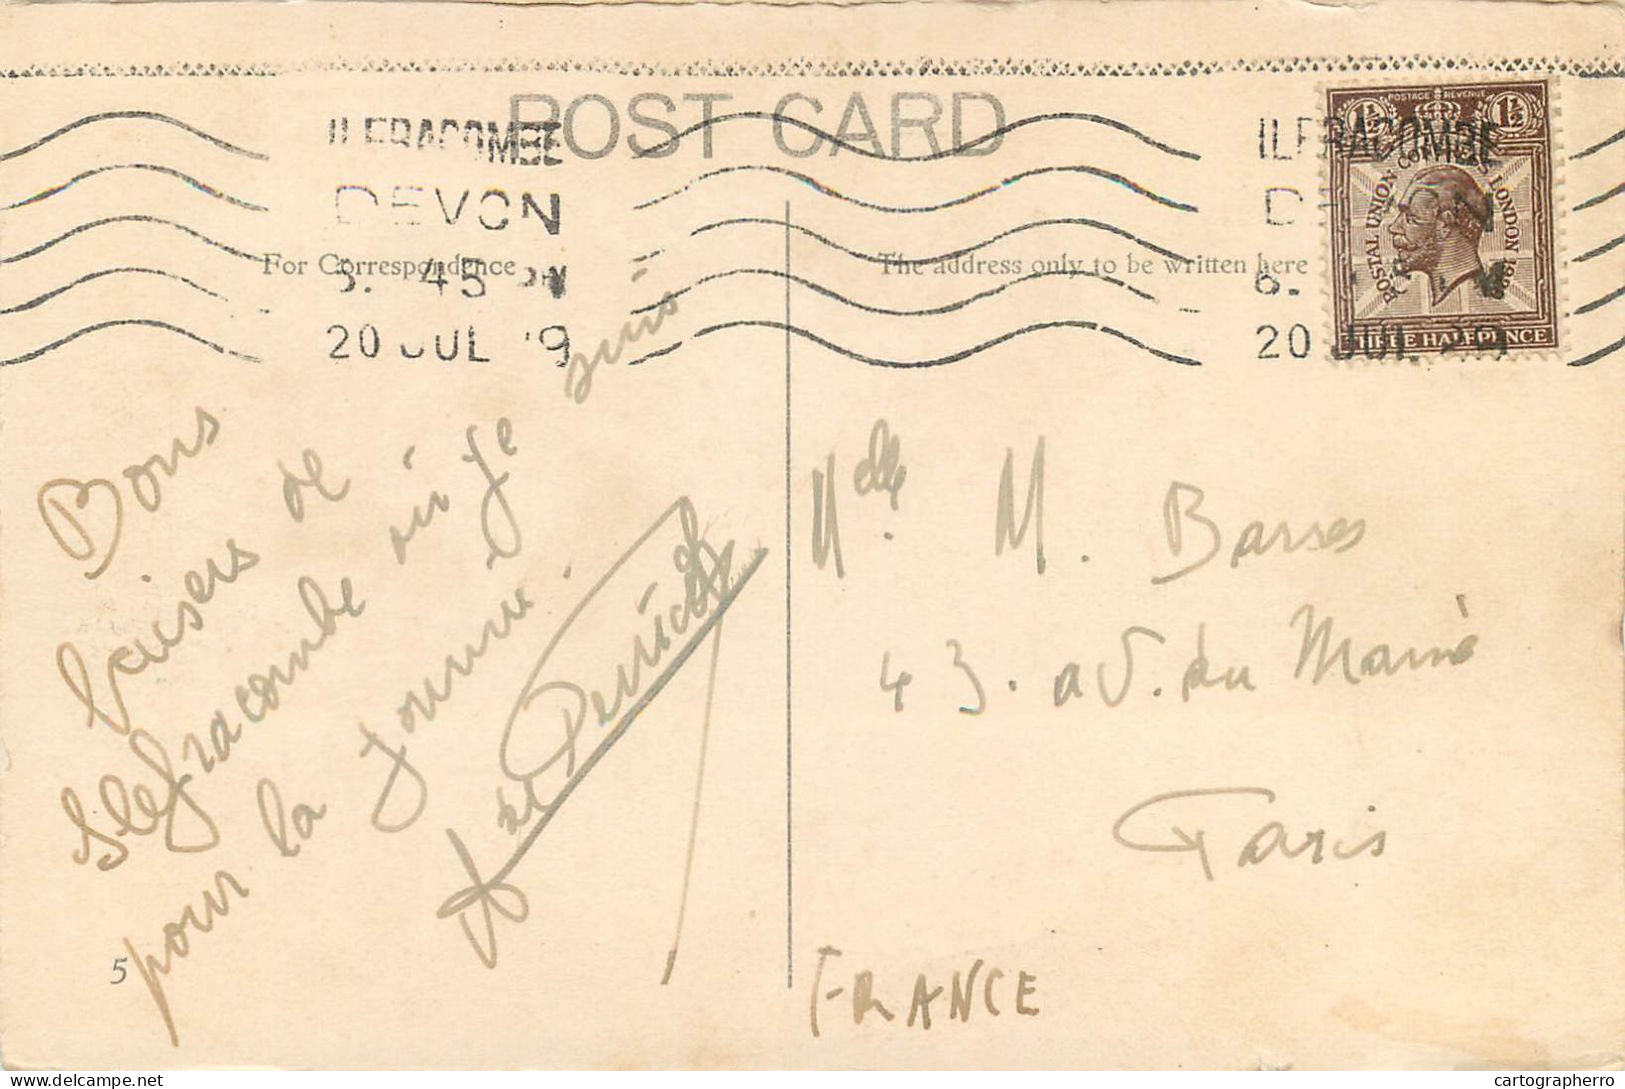 POST CARD
ILFRACOMBE
DEVON
45 PM
20 JUL
ILFRACOMBE
20 JUL
1½ POSTAGE REVENUE 1½
POSTAL UNION CONGRESS LONDON 1929
THREE HALFPENCE
For Correspondence
The address only to be written here
Bons
baisers de
Ilefracombe où je suis
pour la journée.
Mdlle. M. Barres
43. av. du Maine
Paris
FRANCE
5
cartographerro